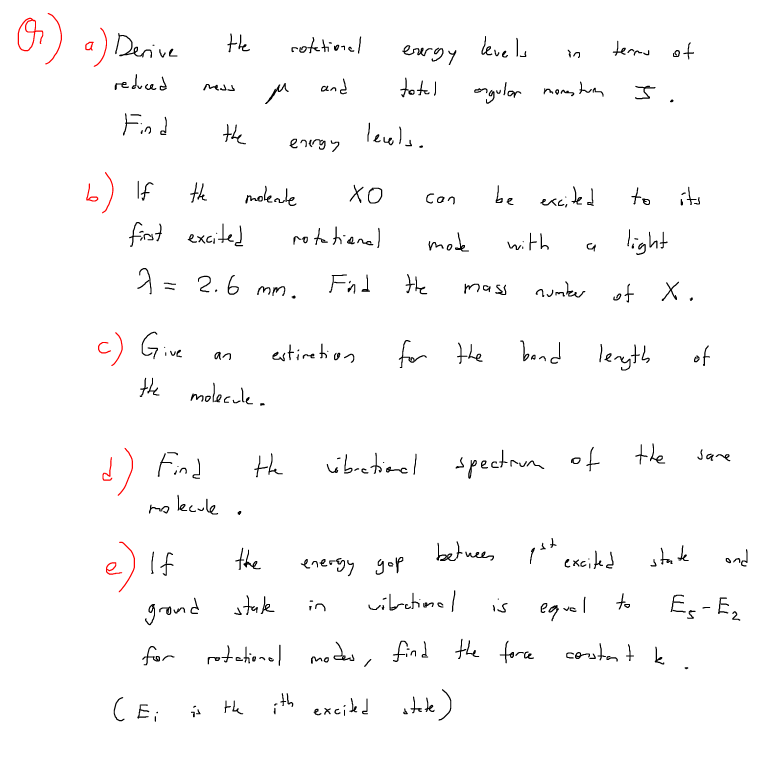 Q1) a) Derive the rotational energy levels in terms of
reduced mass μ and total angular momentum J.
Find the energy levels.
b) If the molecule XO can be excited to its
first excited rotational mode with a light
λ = 2.6 mm. Find the mass number of X.
c) Give an estimation for the bond length of
the molecule.
d) Find the vibrational spectrum of the same
molecule.
e) If the energy gap between 1st excited state and
ground state in vibrational is equal to E₅-E₂
for rotational modes, find the force constant k.
(Eᵢ is the ith excited state)